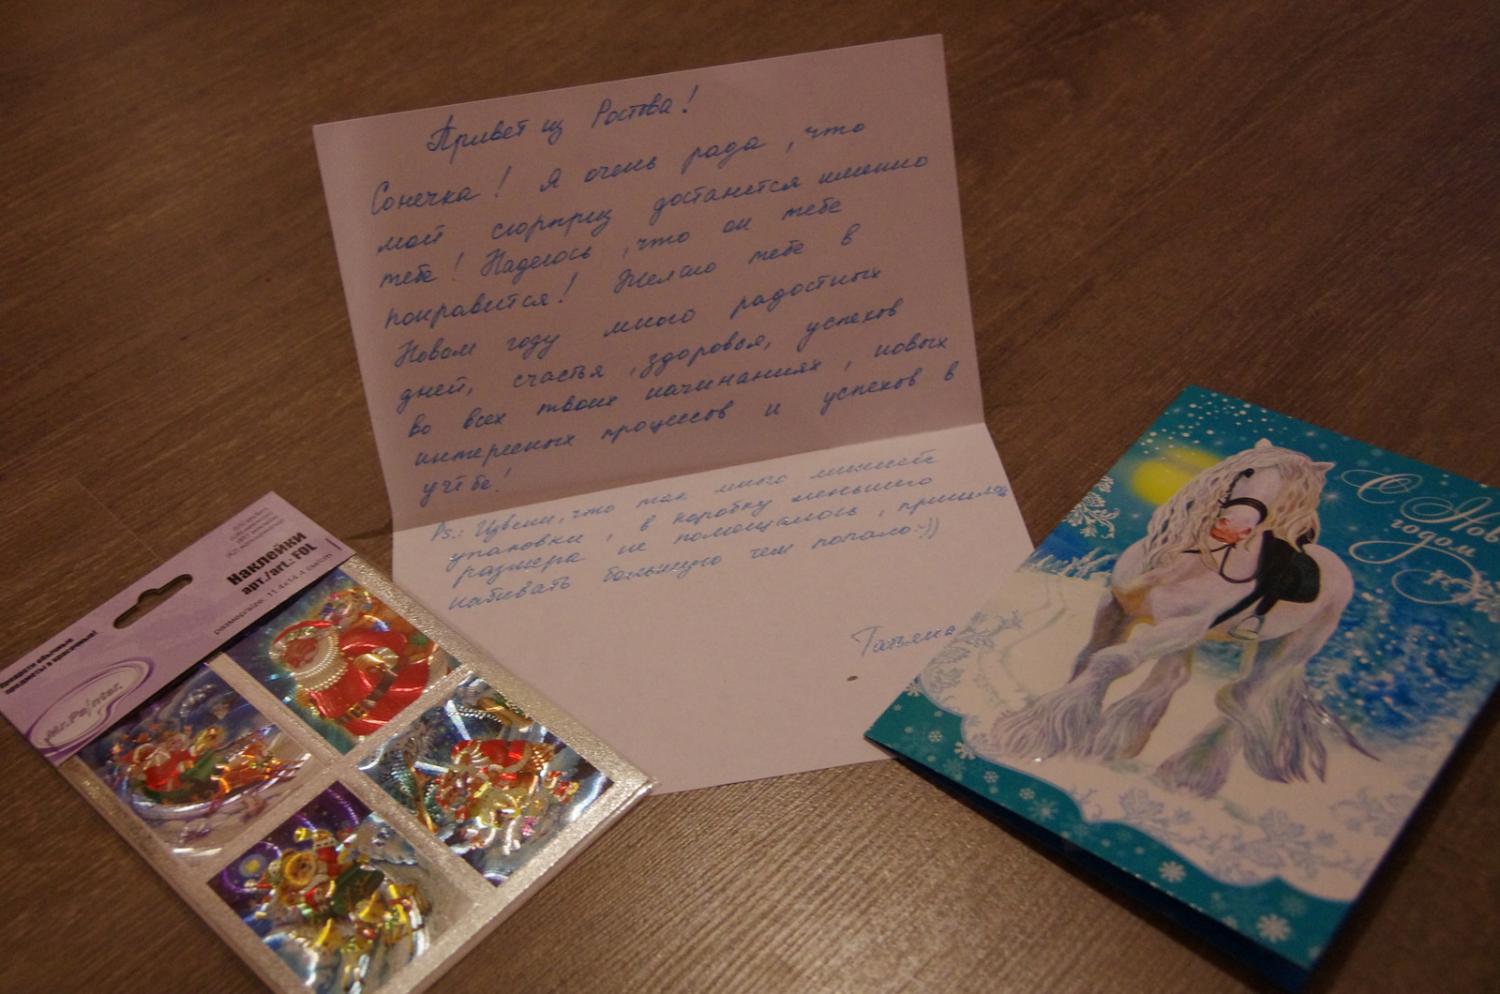 Привет из Ростова!
Сонечка! Я очень рада, что
мой сюрприз достанется именно
тебе! Надеюсь, что он тебе
понравится! Желаю тебе в
Новом году много радостных
дней, счастья, здоровья, успехов
во всех твоих начинаниях, новых
интересных процессов и успехов в
учёбе!
Ps.: Извени, что так много лишней
упаковки, в коробку меньшего
размера не помещалось, пришлось
набивать большую чем попало:-))
Татьяна
Наклейки
арт./art.: FOL
размер/size: 11.4x14.4 см/cm
Mr. Painter.
С Нов
годом